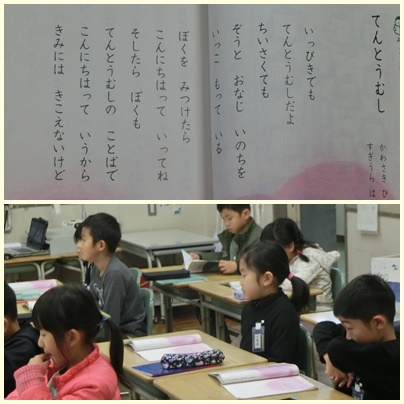 てんとうむし
かわさき ひ
すぎうら は
いっぴきでも
てんとうむしだよ
ちいさくても
ぞうと おなじ いのちを
いっこ もって いる
ぼくを みつけたら
こんにちはって いってね
そしたら ぼくも
てんとうむしの ことばで
こんにちはって いうから
きみには きこえないけど